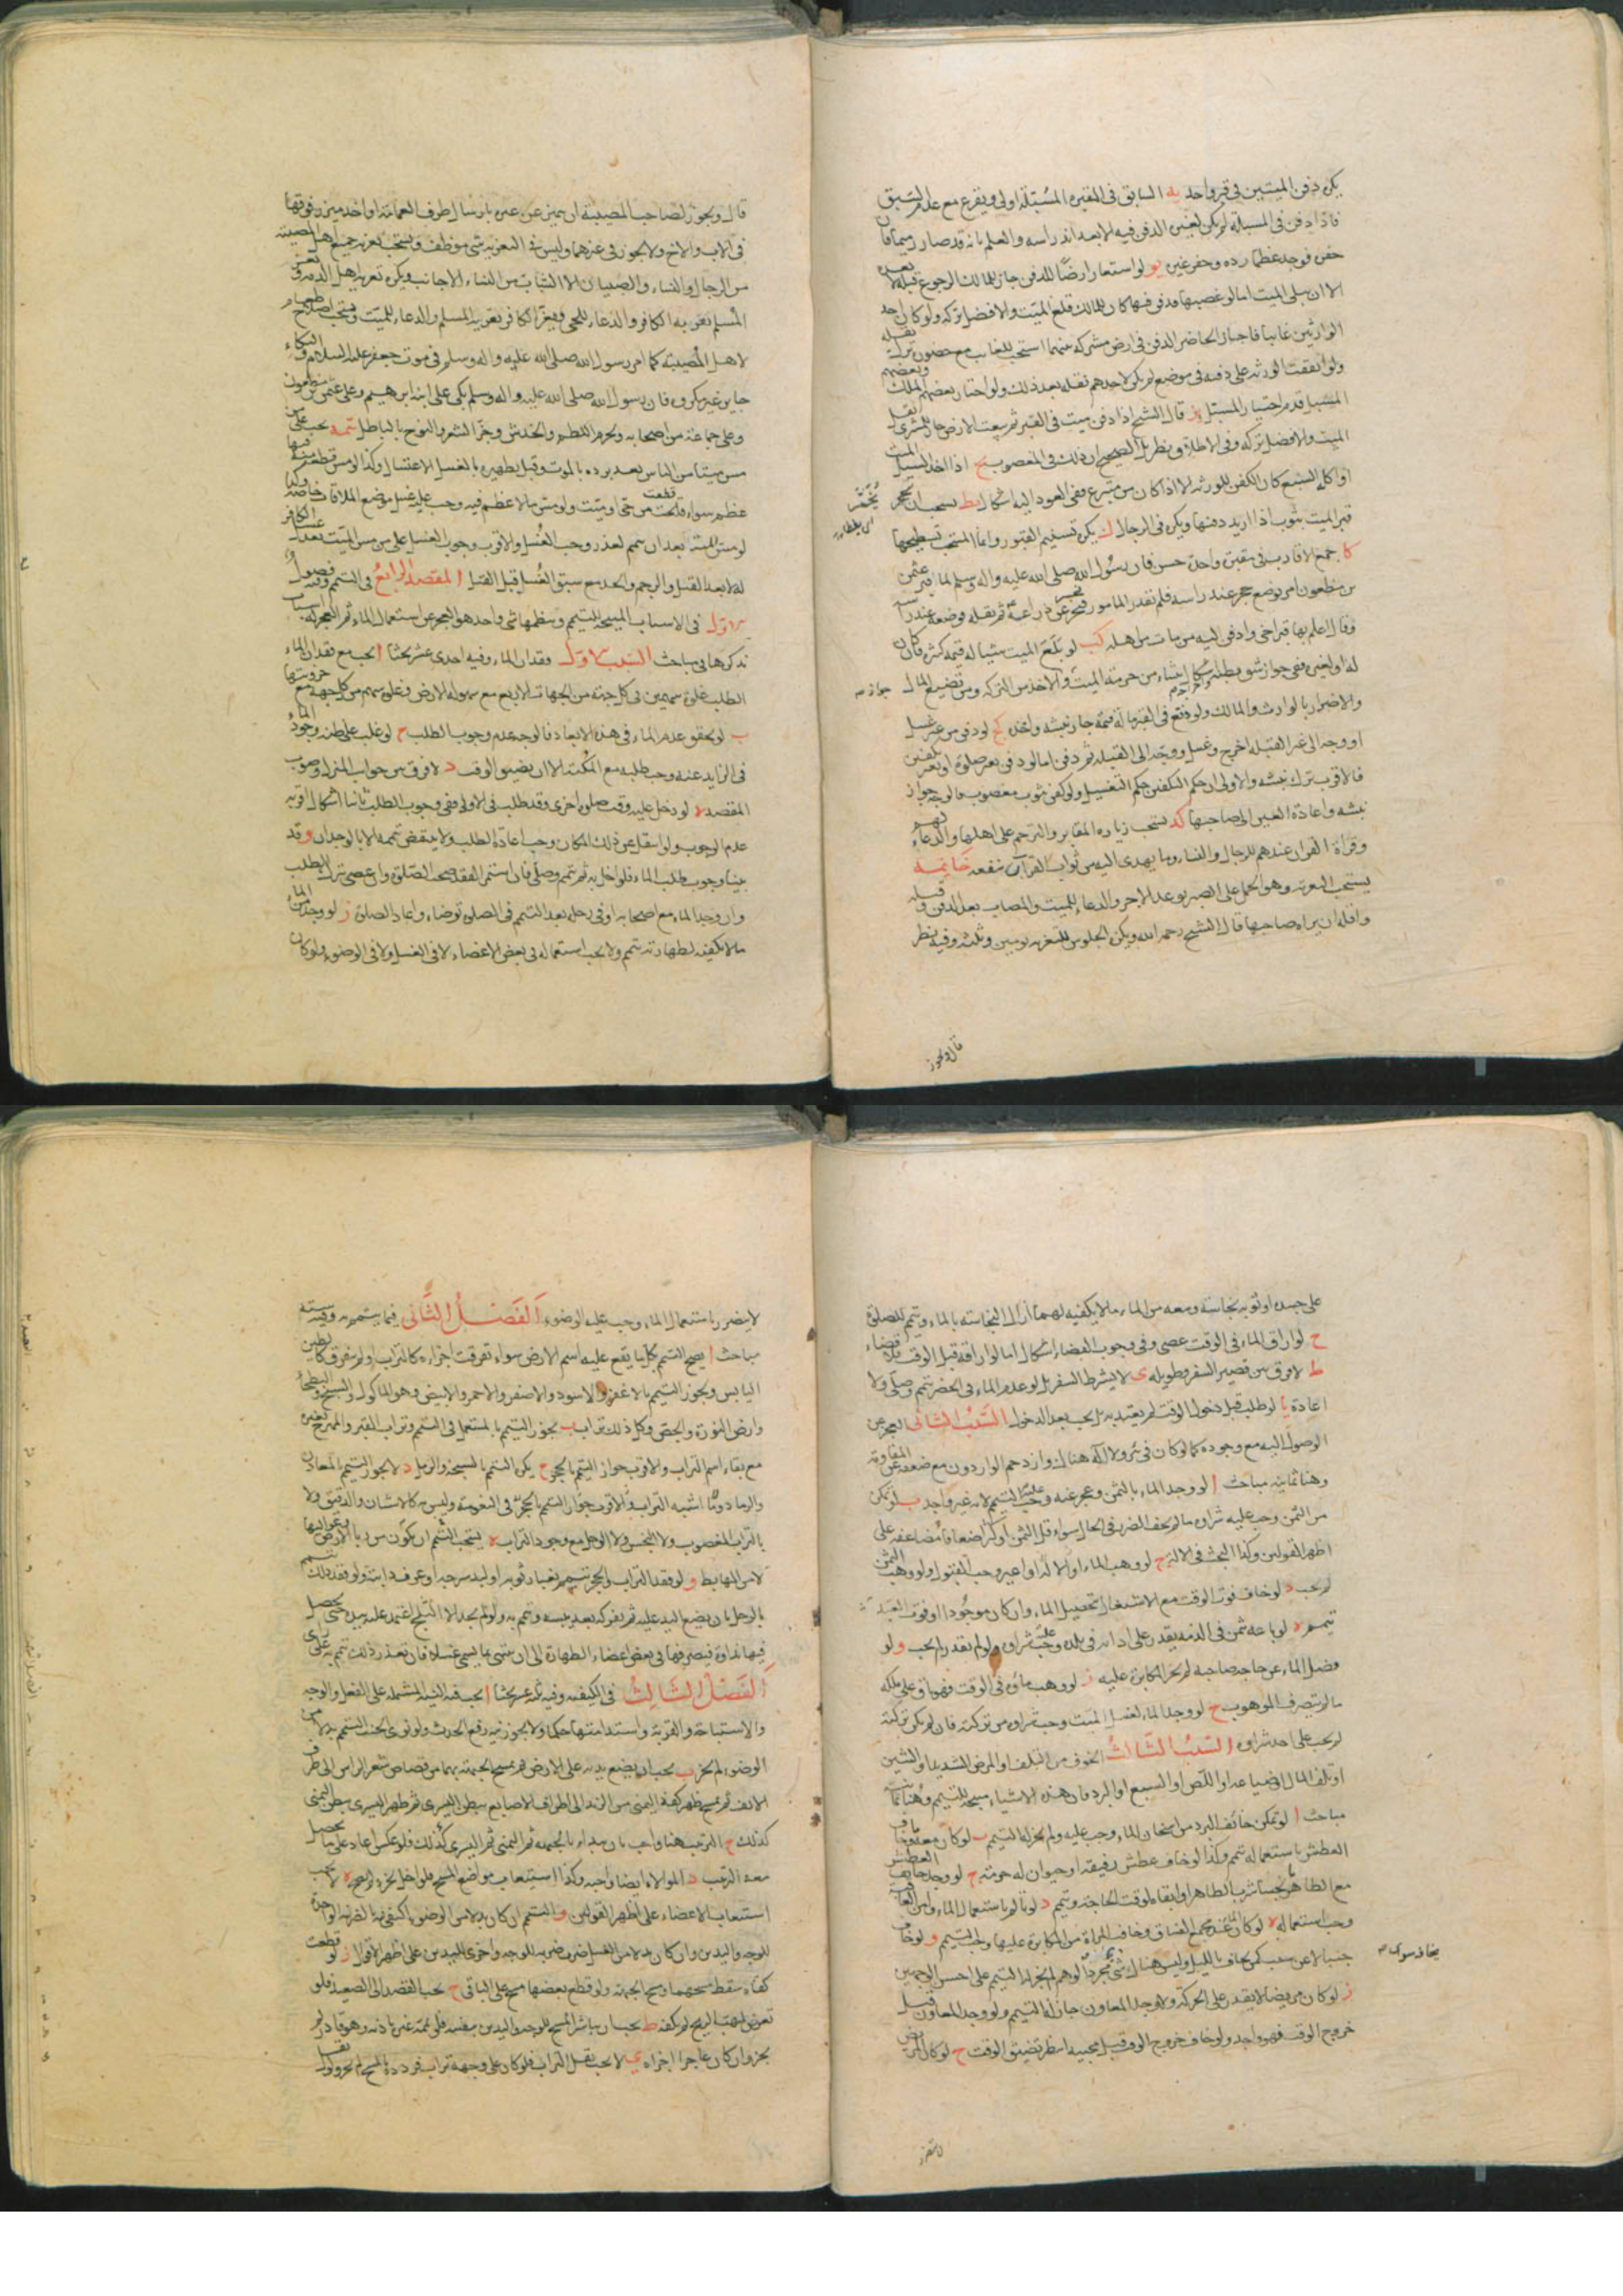 يكره دفن الميتين في قبر واحد يه السابق في المقبرة المسبلة اولى ويقرع مع عدم السبق
فاذا دفن في المسبلة لم يكن لغيره الدفن فيه الا بعد اندراسه والعلم بانه قد صار رميما فان
حفر فوجد عظما رده وحفر غيره يو لو استعار ارضا للدفن جاز للمالك الرجوع قبله لا بعده
الا ان يبلى الميت اما لو غصبها فدفن فيها كان للمالك قلع الميت والافضل تركه ولو كان احد
الوارثين غائبا فاجاز الحاضر الدفن في ارض مشتركة بينهما استحب للغائب مع حضوره ترك نقله
ولو اتفقت الورثة على دفنه في موضع لم يكن لاحدهم نقله بعد ذلك ولو اختار بعضهم الملك وبعضهم
المسبل قدم اختيار المسبل يز قال الشيخ اذا دفن ميت في القبر ثم بيعت الارض جاز للمشتري نقل
الميت والافضل تركه وفي الاطلاق نظر بل الصحيح ان ذلك في المغصوب يح اذا اخذ السيل الميت
او اكله السبع كان الكفن للورثة الا اذا كان من متبرع ففي العود اليه اشكال يط يستحب ان يخمر
قبر الميت بثوب اذا اريد دفنها ويكره في الرجال ك يكره تسنيم القبور وانما المستحب تسطيحها
كا جمع الاقارب في مقبرة واحدة حسن فان رسول الله صلى الله عليه واله وسلم لما قبر عثمن
بن مظعون امر بوضع حجر عند راسه فلم يقدر المامور فحسر عن ذراعيه ثم نقله فوضعه عند راسه
وقال اعلم بها قبر اخي وادفن اليه من مات من اهله كب لو بلع الميت شيئا له قيمة كثرة فان كان
له او لغيره ففي جواز شق بطنه اشكال ينشاء من حرمة الميت والاخذ من التركة ومن تضييع المال
والاضرار بالوارث والمالك ولو وقع في القبر ما له قيمة جاز نبشه واخذه كج لو دفن من غير غسل
او وجه الى غير القبلة اخرج وغسل ووجه الى القبلة ثم دفن اما لو دفن بغير صلوة او بغير تكفين
فالاقرب ترك نبشه والاولى ان حكم التكفين حكم التغسيل ولو كفن بثوب مغصوب فالوجه جواز
نبشه واعادة العين الى صاحبها كد يستحب زيارة المقابر والترحم على اهلها والدعاء لهم
وقراة القران عندهم للرجال والنساء وما يهدى اليه من ثواب القرآن ينفعه خاتمة
يستحب التعزية وهو الحمل على الصبر بوعد الاجر والدعاء للميت والمصاب بعد الدفن وقبله
واقله ان يراه صاحبها قال الشيخ رحمه الله ويكره الجلوس للتعزية يومين وثلثة وفيه نظر
قال ويجوز
قال ويجوز لصاحب المصيبة ان يتميز عن غيره بارسال طرف العمامة او اخذ ميزر فوقها
في الاب والاخ ولا يجوز في غيرهما وليس في التعزية شئ موظف ويستحب تعزية جميع اهل المصيبة
من الرجال والنساء والصبيان الا الشابة من النساء الاجانب ويكره تعزية اهل الذمة
المسلم تعزيه الكافر والدعاء للحي ويعزى الكافر تعزية المسلم والدعاء للميت ويستحب اصلاح طعام
لاهل المصيبة كما امر رسول الله صلى الله عليه واله وسلم في موت جعفر عليه السلام والبكاء
جايز غير مكروه فان رسول الله صلى الله عليه واله وسلم بكى على ابنه ابرهيم وعلى عثمن بن مظعون
وعلى جماعة من اصحابه ويحرم اللطم والخدش وجز الشعر والنوح بالباطل تتمه يجب على من
مس ميتا من الناس بعد برده بالموت وقبل تطهيره بالغسل الاغتسال وكذا لو مس قطعة فيها
عظم سواء قطعت من حي او ميت ولو مس ما لا عظم فيه وجب عليه غسل موضع الملاقاة خاصة
لو مس الميت بعد ان يمم لعذر وجب الغسل والاقرب وجوب الغسل على من مس الميت بعد غسل الكافر
له لا بعد القتل والرجم والحد مع سبق الغسل قبل القتل المقصد الرابع في التيمم وفيه فصول
الاول في الاسباب المبيحة للتيمم وينظمها شئ واحد هو العجز عن استعمال الماء ثم للعجز اسباب
نذكرها في مباحث السبب الاول فقدان الماء وفيه احدى عشر بحثا ا يجب مع فقدان الماء
الطلب غلوة سهمين في كل جهة من الجهات الاربع مع سهولة الارض وغلوة سهم من كل جهة مع حزونتها
ب لو تحقق عدم الماء في هذه الابعاد فالوجه عدم وجوب الطلب ج لو غلب على ظنه وجود الماء
في الزايد عنه وجب طلبه مع المكنة الا ان يضيق الوقت د لا فرق بين جوانب المنزل وصوب
المقصد ه لو دخل عليه وقت صلوة اخرى وقد طلب في الاولى ففي وجوب الطلب ثانيا اشكال اقربه
عدم الوجوب ولو انتقل عن ذلك المكان وجب اعادة الطلب ولا ينقض تيممه الا بالوجدان و قد
بينا وجوب طلب الماء فلو اخل به ثم تيمم وصلى فان استمر الفقد صحت الصلوة وان عصى بترك الطلب
وان وجد الماء مع اصحابه او في رحله بعد التيمم في الصلوة توضاء واعاد الصلوة ز لو وجد من الماء
ما لا يكفيه لطهارته تيمم ولا يجب استعماله في بعض الاعضاء لا في الغسل ولا في الوضوء ولو كان
على جسده او ثوبه نجاسة ومعه من الماء ما لا يكفيه لهما ازال النجاسة بالماء وتيمم للصلوة
ح لو اراق الماء في الوقت عصى وفي وجوب القضاء اشكال اما لو اراقه قبل الوقت فلا قضاء
ط لا فرق بين قصير السفر وطويله ى لا يشرط السفر بل لو عدم الماء في الحضر تيمم وصلى ولا
اعادة يا لو طلب قبل دخول الوقت لم يعتد به بل يجب بعد الدخول السبب الثاني العجز عن
الوصول اليه مع وجوده كما لو كان في بئر ولا آلة هناك او ازدحم الواردون مع ضعفه عن المقاومة
وهنا ثمانية مباحث ا لو وجد الماء بالثمن وعجز عنه وجب عليه التيمم لانه غير واجد ب لو تمكن
من الثمن وجب عليه شراه ما لم يخف الضرر في الحال سواء قل الثمن او كثر اضعافا مضاعفة على
اظهر القولين وكذا البحث في الالة ج لو وهب الماء او الالة او اعير وجب القبول ولو وهب الثمن
لم يجب د لو خاف فوت الوقت مع الاشتغال بتحصيل الماء وان كان موجودا او
تيمم ه لو باعه بثمن في الذمة يقدر على ادائه في بلده وجب عليه شراه ولو لم يقدر لم يجب و لو
فضل الماء عن حاجة صاحبه لم يجز المكابرة عليه ز لو وهب ماءه في الوقت فهو باق على ملكه
ما لم يتصرف الموهوب ح لو وجد الماء لغسل الميت وجب شراه من تركته فان لم يكن تركة
لم يجب على احد شراه السبب الثالث الخوف من التلف او المرض الشديد او الشين
او تلف المال او ضياعه او اللص او السبع او البرد فان هذه الاشياء مبيحة للتيمم وهنا ثمانية
مباحث ا لو تمكن خائف البرد من اسخان الماء وجب عليه ولم يجز له التيمم ب لو كان معه ما يخاف
العطش باستعماله تيمم وكذا لو خاف عطش رفيقه او حيوان له حرمة ج لو وجد خايف العطش
مع الطاهر نجسا شرب الطاهر او ابقاه لوقت الحاجة وتيمم د لو تالم باستعمال الماء وامن العاقبة
وجب استعماله ه لو كان الماء عند مجمع الفساق وخافت المراة من المكابرة عليها وجب التيمم و لو خاف
جنبا لا عن سبب كمن يخاف بالليل وليس هناك شئ بمجرد الوهم لم يجز له التيمم على احسن الوجهين
ز لو كان مريضا لا يقدر على الحركة ولا وجد المعاون جاز له التيمم ولو وجد المعاون قبل
خروج الوقت فهو واجد ولو خاف خروج الوقت قبل مجيئه انتظر تضيق الوقت ح لو كان المريض
لا يتضرر باستعمال الماء وجب عليه الوضوء الفصل الثاني فيما يتيمم به وفيه ستة
مباحث ا يصح التيمم بكل ما يقع عليه اسم الارض سواء تفرقت اجزاءه كالتراب او لم يتفرق كالطين
اليابس ويجوز التيمم بالاعفر والاسود والاصفر والاحمر والابيض وهو الماكول والسبخ والبطحاء
وارض النورة والجص وكل ذلك تراب ب يجوز التيمم بالمستعمل في التيمم وتراب القبر والممتزج بغيره
مع بقاء اسم التراب والاقرب جواز التيمم بالحجر ج يكره التيمم بالسبخة والرمل د لا يجوز التيمم بالمعادن
والرماد وما اشبه التراب والاقرب جواز التيمم بالحجر في النعومة وليس به كالاشنان والدقيق ولا
بالتراب المغصوب ولا النجس ولا الوحل مع وجود التراب ه يستحب التيمم ان يكون من ربا الارض وعواليها
لا من المهابط و لو فقد التراب والحجر تيمم بغبار ثوبه او لبد سرجه او عرف دابته ولو فقد ذلك تيمم
بالوحل بان يضع اليد عليه ثم يفركه بعد يبسه وتيمم به ولو لم يجد الا الثلج اعتمد عليه بيده حتى يحصل
فيها نداوة فيصرفها في بعض اعضاء الطهارة الى ان ينتهي ما يسمى غسلا فان تعذر ذلك تيمم به على راى
الفصل الثالث في الكيفية وفيه ثلثة عشر بحثا ا يجب فيه النية المشتملة على الفعل والوجه
والاستباحة والقربة واستدامتها حكما ولا يجوز فيه رفع الحدث ولو نوى الجنب التيمم بدلا من
الوضوء لم يجز ب يجب ان يضع يديه على الارض ثم يمسح الجبهة بهما من قصاص شعر الراس الى طرف
الانف ثم يمسح ظهر كفه اليمنى من الزند الى اطراف الاصابع ببطن اليسرى ثم ظهر اليسرى ببطن اليمنى
كذلك ج الترتيب هنا واجب بان يبداء بالجبهة ثم اليمنى ثم اليسرى كذلك فلو عكس اعاد على ما يحصل
معه الترتيب د الموالاة ايضا واجبة وكذا استيعاب مواضع المسح فلو اخل بجزء لم يصح ه لا يجب
استيعاب الاعضاء على اظهر القولين و التيمم ان كان بدلا من الوضوء اكتفى فيه بالضربة الواحدة
للوجه واليدين وان كان بدلا من الغسل ضرب ضربة للوجه واخرى لليدين على اظهر الاقوال ز لو قطعت
كفاه سقط مسحهما ومسح الجبهة ولو قطع بعضها مسح على الباقي ح يجب القصد الى الصعيد فلو
تعرض لمهب الريح لم يكفه ط يجب ان يباشر المسح للوجه واليدين بنفسه فلو يممه غيره باذنه وهو قادر لم
يجز وان كان عاجزا اجزاه ى لا يجب نقل التراب فلو كان على وجهه تراب فردده بالمسح لم يجز ولو نقل